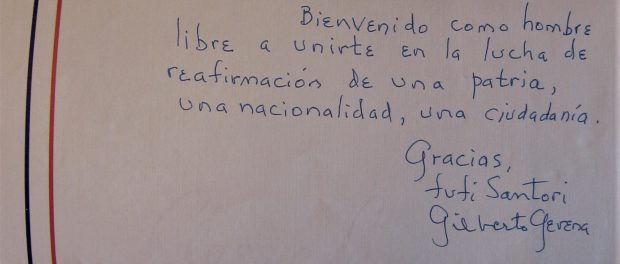 Bienvenido como hombre
libre a unirte en la lucha de
reafirmación de una patria,
una nacionalidad, una ciudadanía.
Gracias,
Fufi Santori
Gilberto Gerena